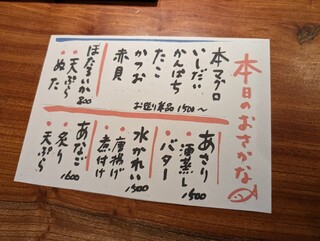 本日のおさかな
本マグロ
いしだい
かんぱち
たこ
かつお
赤貝
お造り単品 1500〜
ほたるいか 800
天ぷら
ぬた
あさり
酒蒸し
バター
1500
水かれい
唐揚げ
煮付け
1500
あなご
炙り
天ぷら
1600